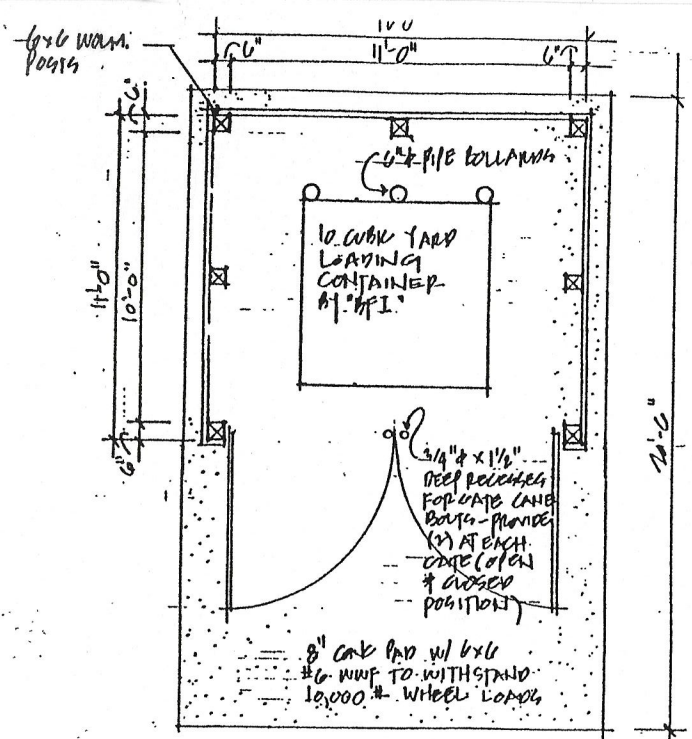 6x6 WOLM.
POSTS
6"
11'-0"
6"
6"
11'-0"
10'-0"
6"
6"ø PIPE BOLLARDS
10 CUBIC YARD
LOADING
CONTAINER
BY "BFI."
3/4"ø x 1 1/2"
DEEP RECESSES
FOR GATE CANE
BOLTS - PROVIDE
(2) AT EACH
GATE (OPEN
& CLOSED
POSITION)
8" CONC PAD W/ 6x6
#6 WWF TO WITHSTAND
10,000 # WHEEL LOADS